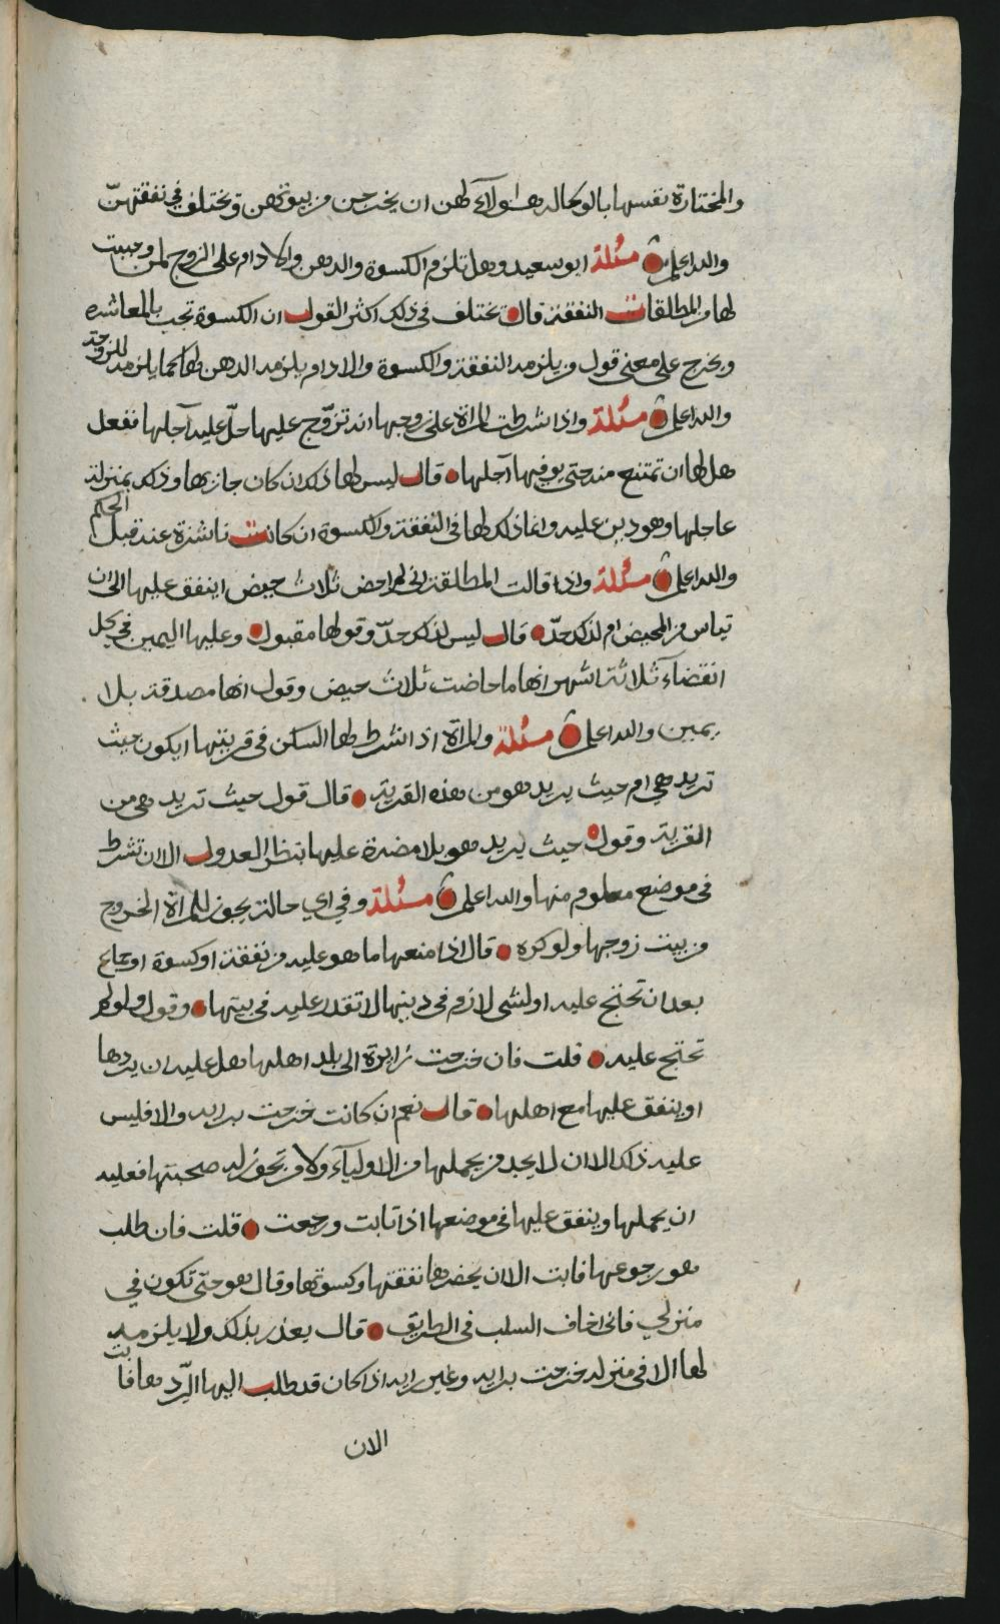 والمختارة نفسها بالوكالة هؤلآء لهن ان يخرجن من بيوتهن ويختلف في نفقتهنّ
والله اعلم مسئلة ابو سعيد وهل تلزم الكسوة والدهن والادام على الزوج لمن وجبت
لها من المطلقات النفقة قال يختلف في ذلك اكثر القول ان الكسوة تجب بالمعاشره
ويخرج على معنى قول من يلزمه النفقة والكسوة والادام يلزمه الدهن لها كما يلزمه للزوجة
والله اعلم مسئلة واذا شرطت المراة على زوجها انه تزوّج عليها حلّ عليه آجلها ففعل
هل لها ان تمتنع منه حتى يوفيها آجلها قال ليس لها ذلك ان كان جاز بها وذلك بمنزلة
عاجلها وهو دين عليه وانما ذلك لها في النفقة والكسوة ان كانت ناشزة عنه قبل الحكم
والله اعلم مسئلة واذا قالت المطلقة اني لم احض ثلاث حيض اينفق عليها الى ان
تياس من المحيض ام لذلك حدّ قال ليس لذلك حدّ وقولها مقبول وعليها اليمين في كل
انقضاء ثلاثة اشهر انها ما حاضت ثلاث حيض وقول انها مصدقة بلا
يمين والله اعلم مسئلة والمراة اذا شرط لها السكن في قريتها ايكون حيث
تريد هي ام حيث يريد هو من هذه القرية قال قول حيث تريد هي من
القرية وقول حيث يريد هو بلا مضرة عليها بنظر العدول الا ان تشرط
في موضع معلوم منها والله اعلم مسئلة وفي اي حالة يجوز للمراة الخروج
من بيت زوجها ولو كره قال اذا منعها ما هو عليه من نفقة او كسوة او جماع
بعد ان تحتج عليه او لشي لازم في دينها لا تقدر عليه في بيتها وقول ولو لم
تحتج عليه قلت فان خرجت زايرة الى بلد اهلها هل عليه ان يردها
او ينفق عليها مع اهلها قال نعم ان كانت خرجت برايه والا فليس
عليه ذلك الا ان لا يجد من يحملها من الاوليآء ولا من تجوز له صحبتها فعليه
ان يحملها وينفق عليها في موضعها اذا تابت ورجعت قلت فان طلب
هو رجوعها فابت الا ان يحضرها نفقتها وكسوتها وقال هو حتّى تكون في
منزلي فاني اخاف السلب في الطريق قال يعذر بذلك ولا يلزمه
لها الا في منزله خرجت برايه وغير رايه اذا كان قد طلب اليها الرّد معها فابت
الان